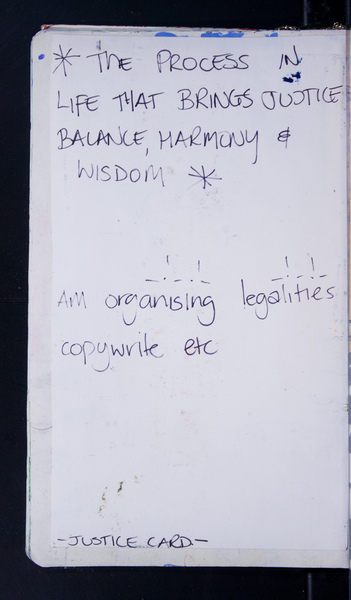 * THE PROCESS IN
LIFE THAT BRINGS JUSTICE
BALANCE, HARMONY &
WISDOM *
Am organising legalities
copywrite etc
-JUSTICE CARD-